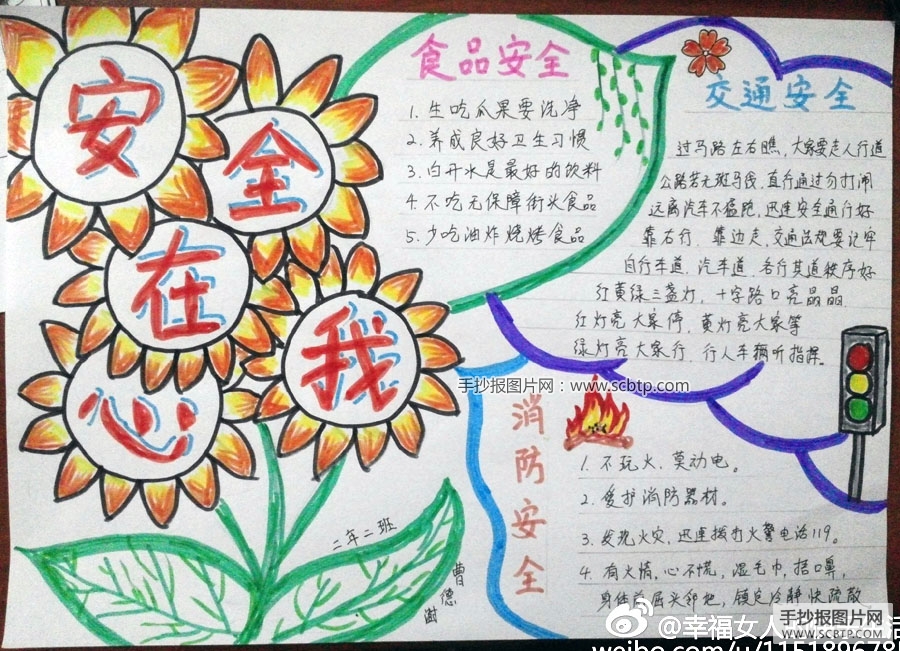 安
全
在
我
心
食品安全
1. 生吃瓜果要洗净
2. 养成良好卫生习惯
3. 白开水是最好的饮料
4. 不吃无保障街头食品
5. 少吃油炸烧烤食品
交通安全
过马路左右瞧，大家要走人行道
公路若无斑马线，直行通过勿打闹
远离汽车不猛跑，迅速安全通行好
靠右行，靠边走，交通法规要记牢
自行车道，汽车道，各行其道秩序好
红黄绿三盏灯，十字路口亮晶晶
红灯亮大家停，黄灯亮大家等
绿灯亮大家行，行人车辆听指挥。
手抄报图片网：www.scbtp.com
消防安全
1. 不玩火，莫动电。
2. 爱护消防器材。
3. 发现火灾，迅速拨打火警电话119。
4. 有火情，心不慌，湿毛巾，捂口鼻，
身体前屈头邻地，镇定冷静快疏散
二年二班
曹德
@幸福女人
手抄报图片网
WWW.SCBTP.COM
weibo.com/u/115189678